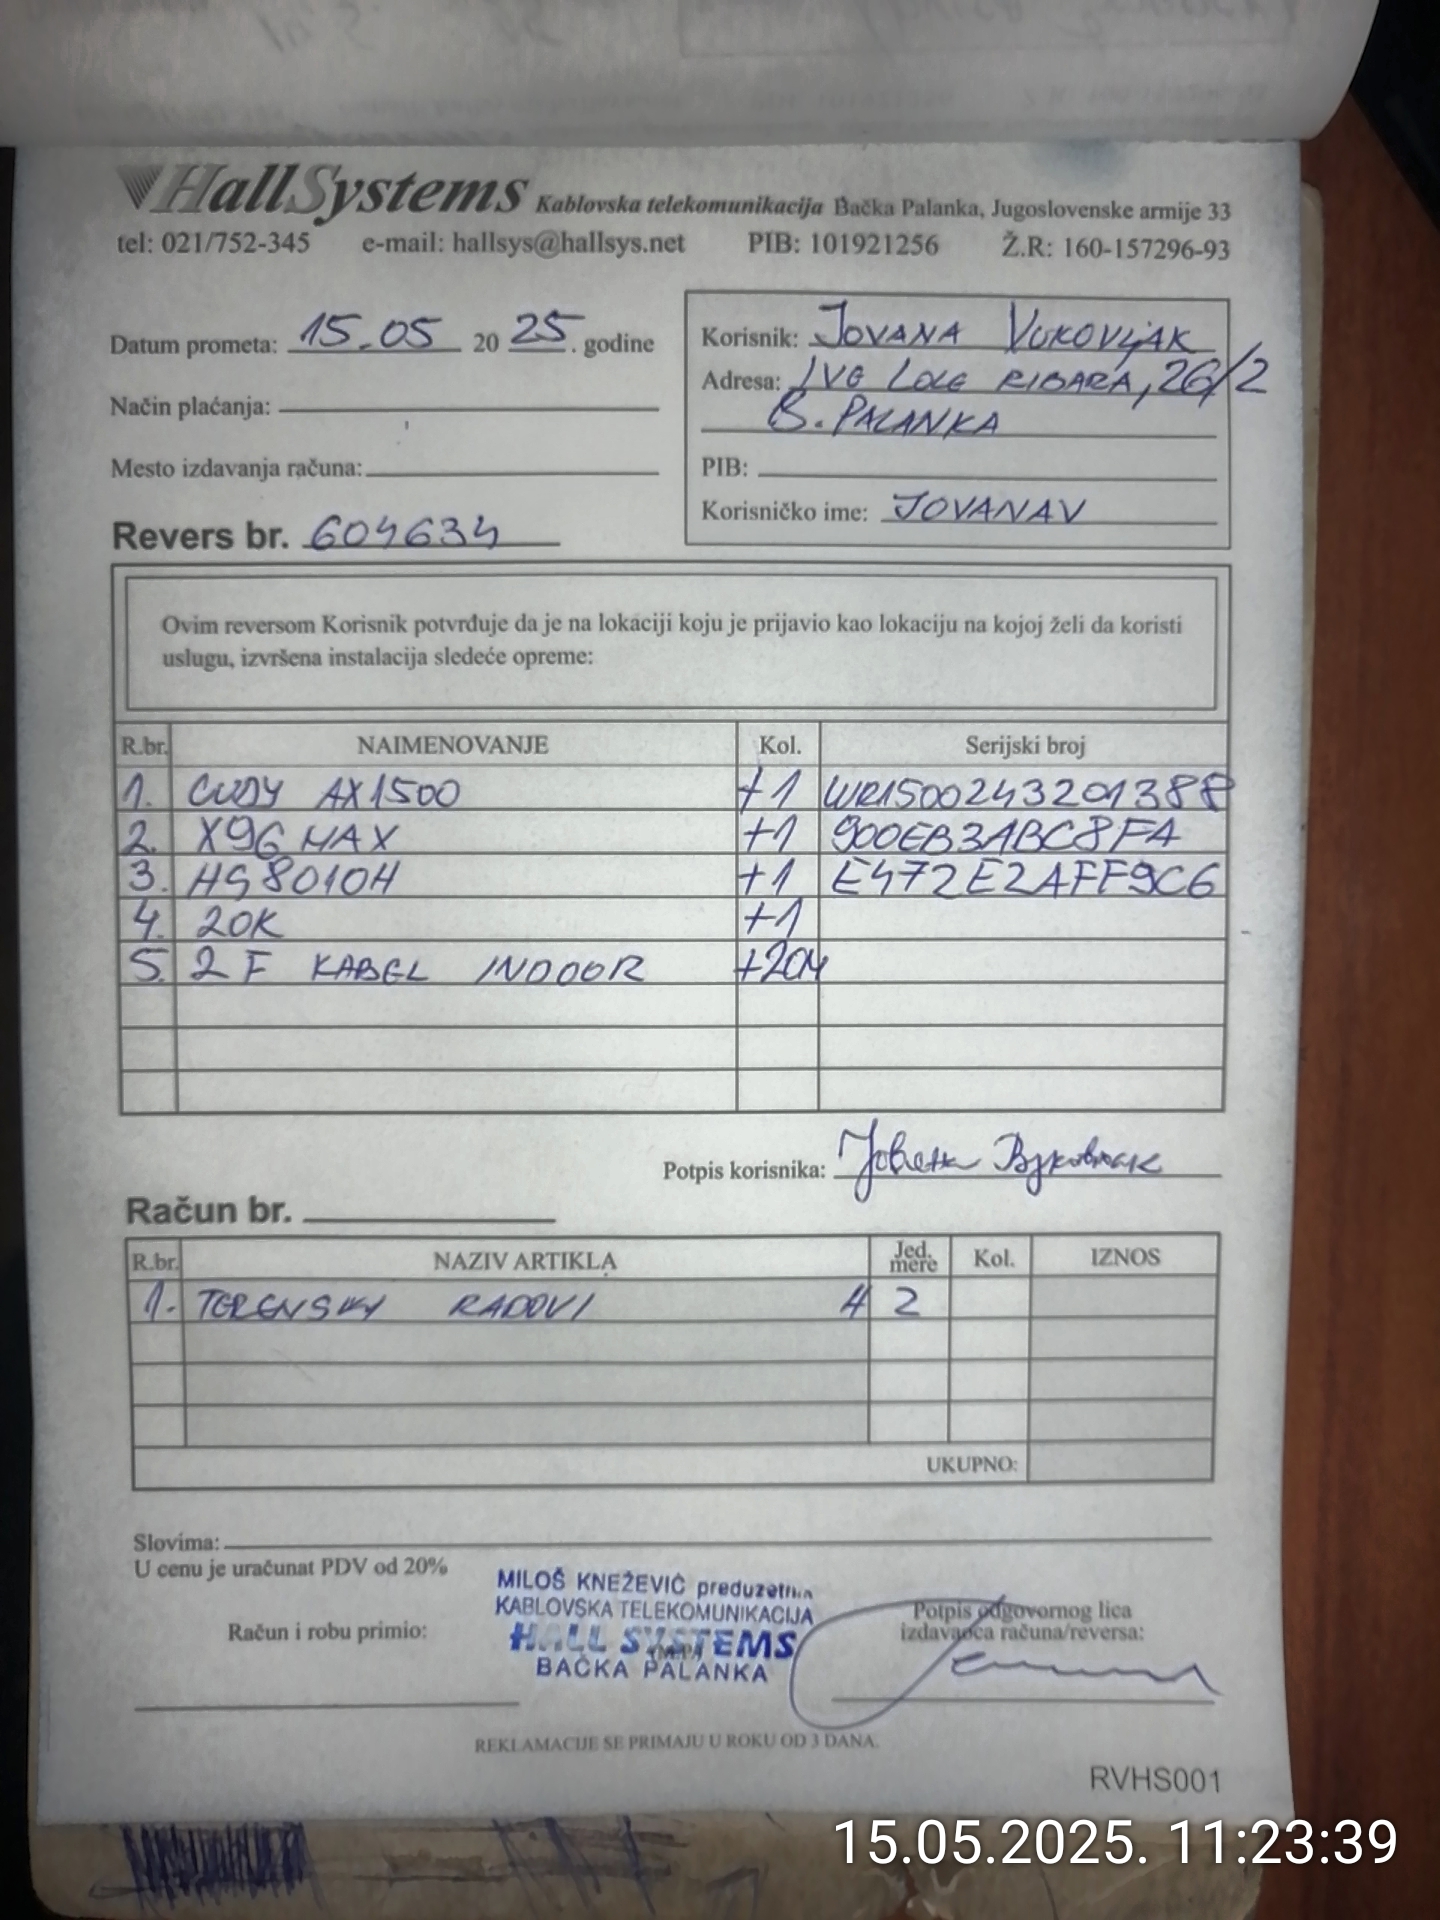 HallSystems Kablovska telekomunikacija Bačka Palanka, Jugoslovenske armije 33
tel: 021/752-345 e-mail: hallsys@hallsys.net PIB: 101921256 Ž.R: 160-157296-93
Datum prometa: 15.05 2025. godine
Način plaćanja:
Mesto izdavanja računa:
Revers br. 604634
Korisnik: JOVANA VUKOVLJAK
Adresa: IVE LOLE RIBARA, 26/2
B. PALANKA
PIB:
Korisničko ime: JOVANAV
Ovim reversom Korisnik potvrđuje da je na lokaciji koju je prijavio kao lokaciju na kojoj želi da koristi
uslugu, izvršena instalacija sledeće opreme:
R.br. NAIMENOVANJE Kol. Serijski broj
1. CUDY AX1500 +1 WR1500243201388
2. X96 MAX +1 900EB3ABC8FA
3. HG8010H +1 E472E2AFF9C6
4. 20K +1
5. 2F KABEL INDOOR +20M
Potpis korisnika:
Račun br.
R.br. NAZIV ARTIKLA Jed. mere Kol. IZNOS
1. TERENSKI RADOVI H 2
UKUPNO:
Slovima:
U cenu je uračunat PDV od 20%
MILOŠ KNEŽEVIĆ preduzetnik
KABLOVSKA TELEKOMUNIKACIJA
HALL SYSTEMS
BAČKA PALANKA
Račun i robu primio:
Potpis odgovornog lica
izdavaoca računa/reversa:
REKLAMACIJE SE PRIMAJU U ROKU OD 3 DANA.
RVHS001
15.05.2025. 11:23:39